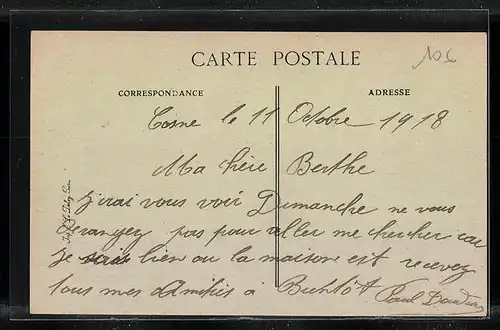 CARTE POSTALE
10 €
CORRESPONDANCE
ADRESSE
Cosne le 11 Octobre 1918
Ma chère Berthe
J'irai vous voir Dimanche ne vous
deranyez pas pour aller me chercher car
je sais bien ou la maison est recevez
tous mes Amitiés a Bientôt Paul